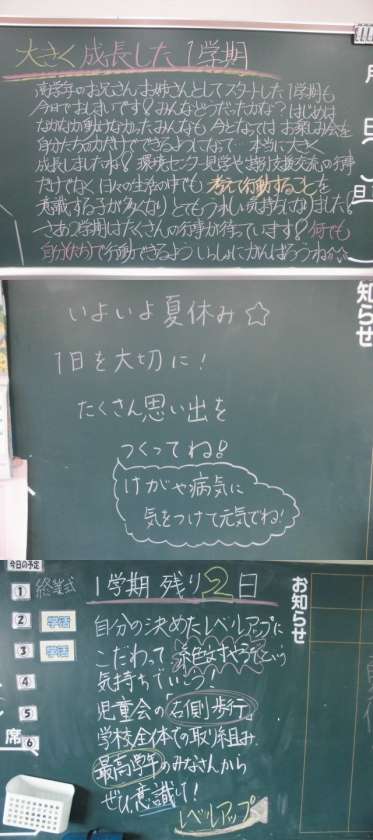 大きく成長した1学期
高学年のお兄さん、お姉さんとしてスタートした1学期も
今日でおしまいです!みんなどうだったかな?はじめは
なかなか動けなかったみんなも今となってはお楽しみ会を
自分たちの力だけでできるようになって…本当に大きく
成長しましたね!環境センター見学や
だけでなく日々の生活の中でも考えて行動することを
意識する子が多くなりとてもうれしい気持ちになりました!
さあ2学期はたくさんの行事が待っています!何でも
自分(たち)で行動できるよういっしょにがんばろうね
知らせ
いよいよ夏休み☆
1日を大切に!
たくさん思い出を
つくってね!
けがや病気に
気をつけて元気でね!
今日の予定
1 終業式
2 学活
3 学活
4
5
6
席
1学期 残り2日
お知らせ
自分の決めたレベルアップに
こだわって
気持ちでいこう!
児童会の「右側歩行」
学校全体での取り組み
最高学年のみなさんから
ぜひ意識して!
レベルアップ